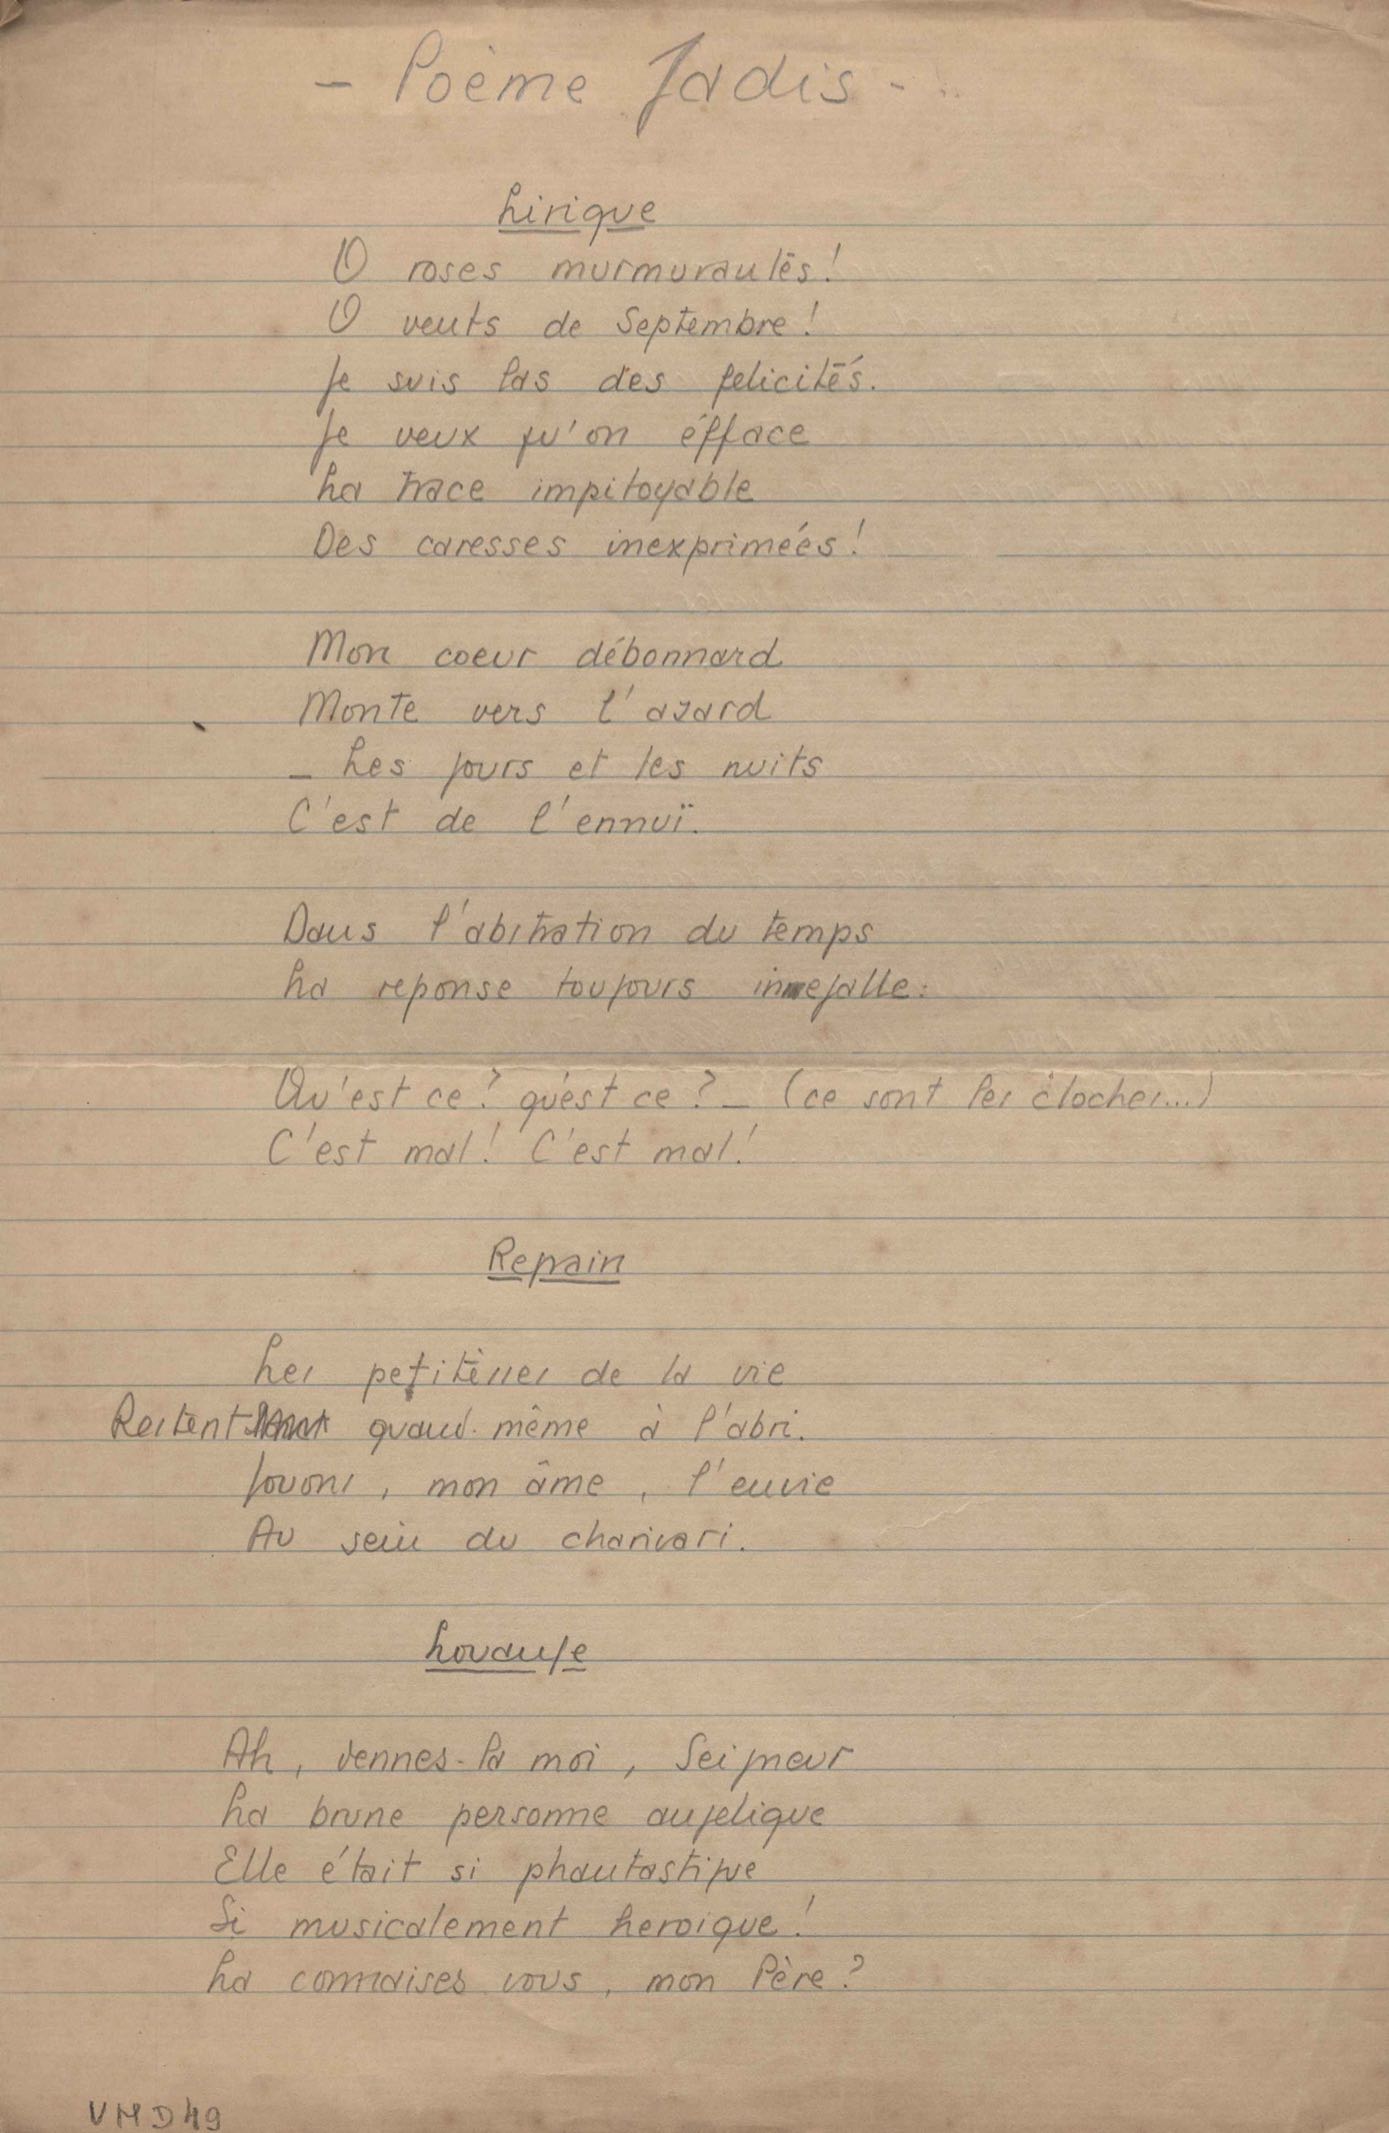 - Poème Jadis -
Lirique
O roses murmurautés!
O veuts de Septembre!
Je suis las des felicités.
Je veux qu'on éfface
La trace impitoyable
Des caresses inexprimeés!
Mon coeur débonnard
Monte vers l'azard
_ Les jours et les nuits
C'est de l'ennuï.
Daus l'abitration du temps
La reponse toujours inegalle:
Qu'est ce? qu'est ce? _ (ce sont les cloches...)
C'est mal! C'est mal!
Refrain
Les petitèsses de la vie
Restent quand même à l'abri.
Jouons, mon âme, l'envie
Au sein du charivari.
Louange
Ah, vennes-la moi, Seigneur
La brune personne angelique
Elle était si phantastique
Si musicalement heroique!
La connaises vous, mon Père?
VMD49